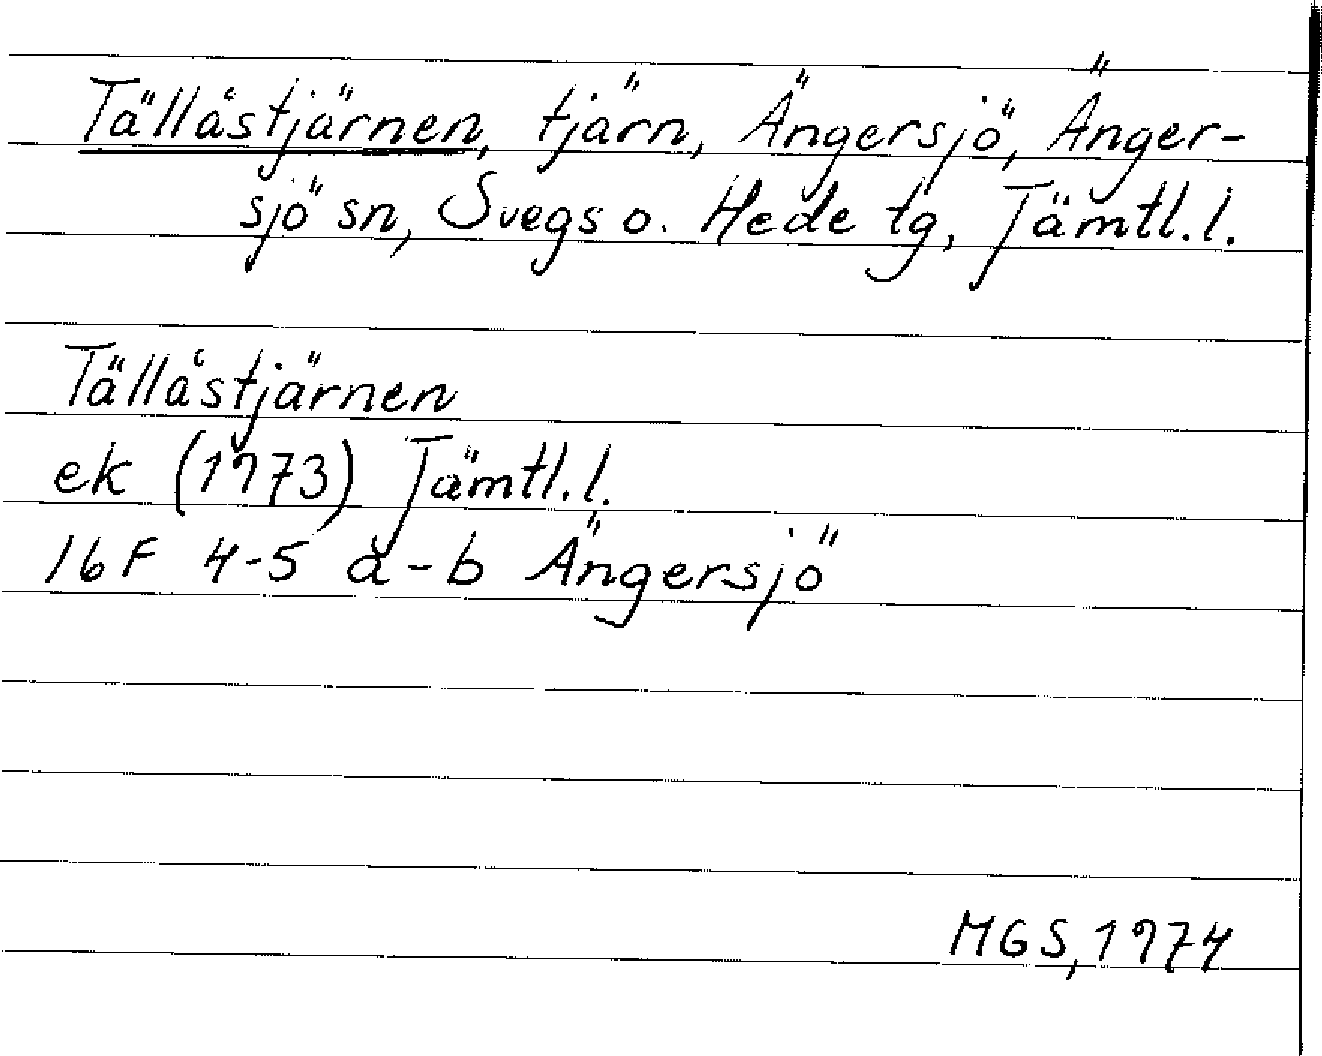 Tällåstjärnen, tjärn, Ängersjö, Änger-
sjö sn, Svegs o. Hede tg, Jämtl. l.
Tällåstjärnen
ek (1973) Jämtl. l.
16F 4-5 a-b Ängersjö
MGS, 1974